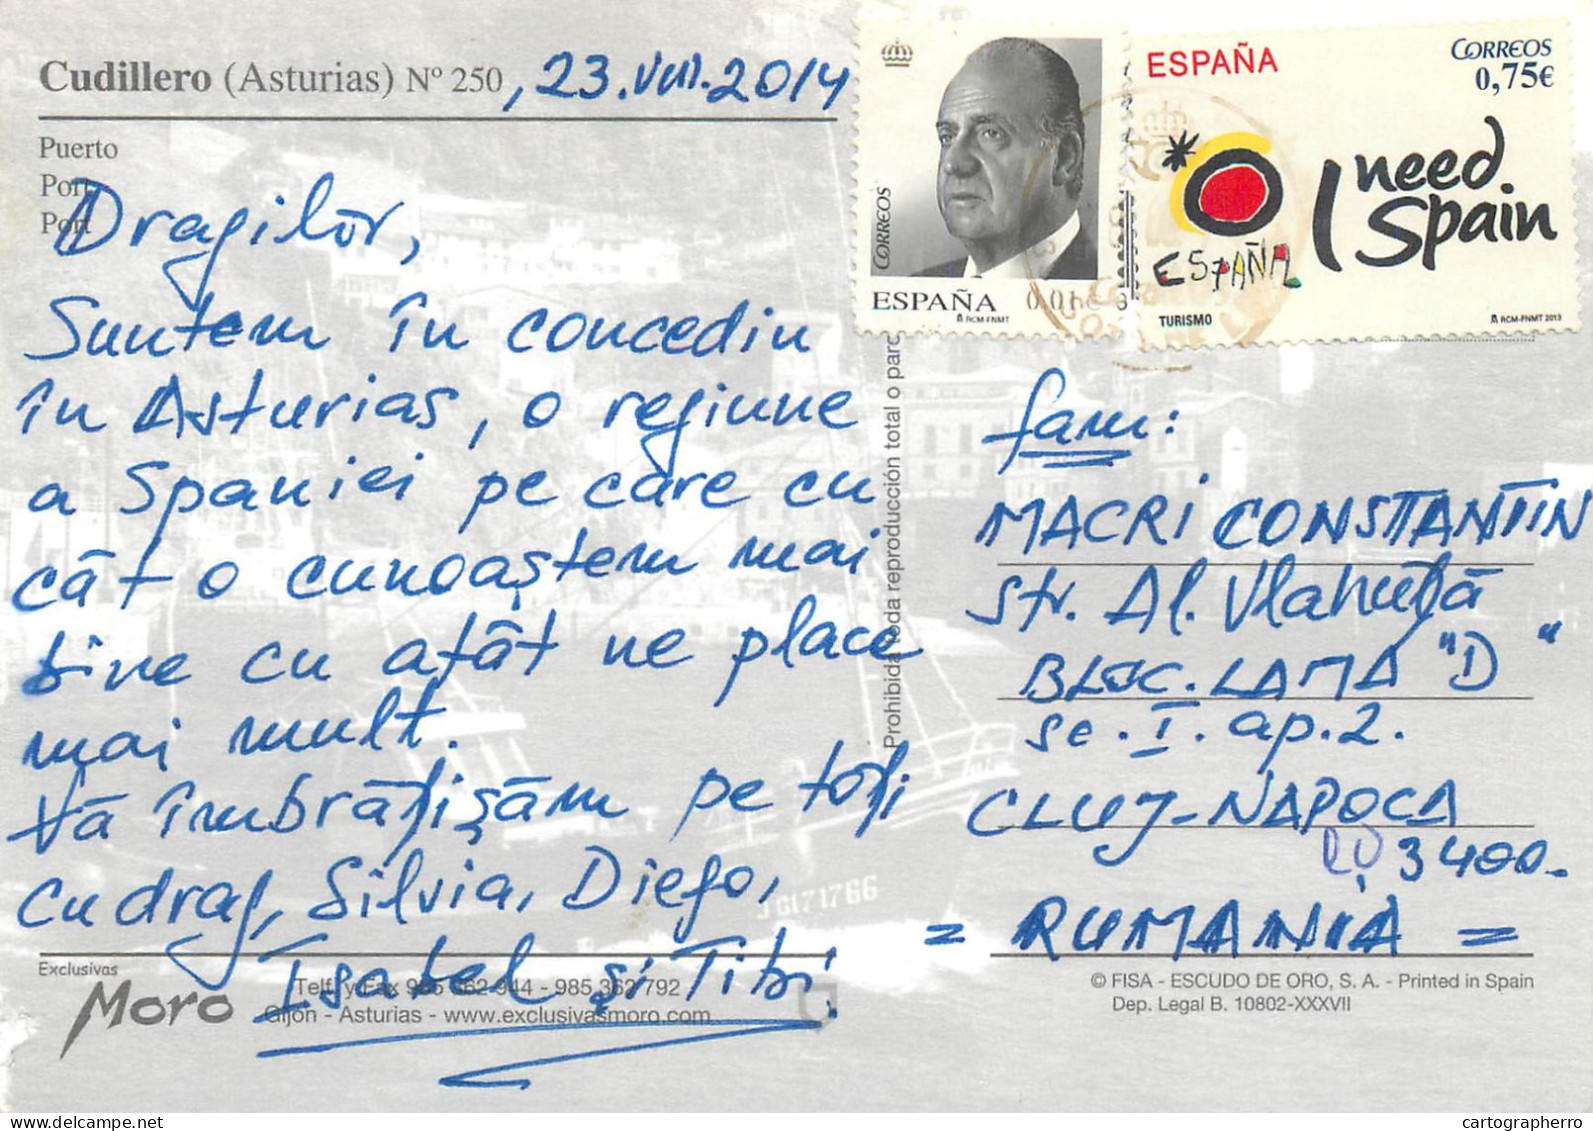 Cudillero (Asturias) Nº 250, 23.VIII.2014
Puerto
Port
Port
Dragilor,
Suntem în concediu
în Asturias, o regiune
a Spaniei pe care cu
cât o cunoaștem mai
bine cu atât ne place
mai mult.
Vă îmbrățișăm pe toți
cu drag, Silvia, Diego,
Isabel și Tibi.
Exclusivas
Moro
Telf. y Fax 985 362 944 - 985 362 792
Gijón - Asturias - www.exclusivasmoro.com
Prohibida toda reproducción total o parc
CORREOS
ESPAÑA
0,01€
RCM-FNMT
ESPAÑA
CORREOS
0,75€
I need
Spain
ESPAÑA
TURISMO
RCM-FNMT 2013
fam:
MACRI CONSTANTIN
str. Al. Vlahuță
BLOC. LAMA "D"
sc. I. ap. 2.
CLUJ-NAPOCA
RO 3400.
= RUMANIA =
© FISA - ESCUDO DE ORO, S. A. - Printed in Spain
Dep. Legal B. 10802-XXXVII
JGI71766
cartographerro